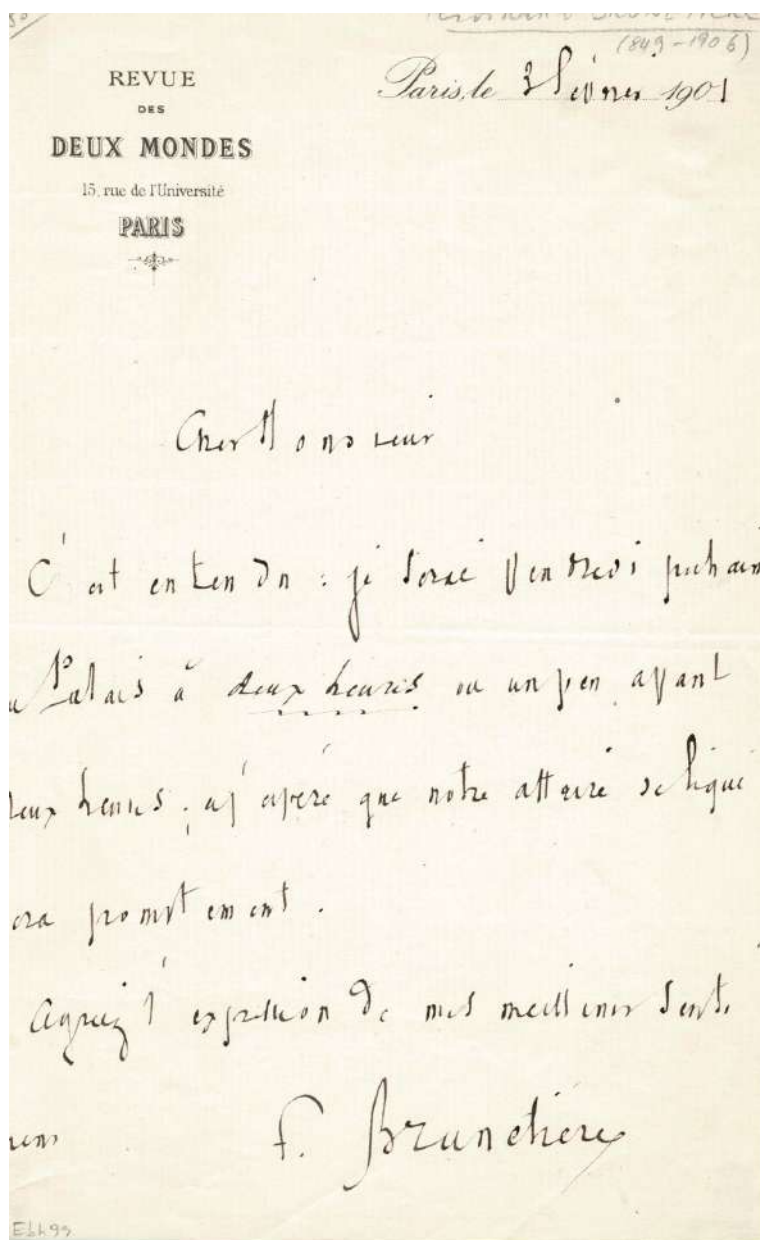 (1849-1906)
REVUE
DES
DEUX MONDES
15, rue de l'Université
PARIS
Paris, le 3 février 1901
Cher Monsieur
C'est entendu : je serai Vendredi prochain
au Palais à deux heures ou un peu avant
deux heures ; et j'espère que notre affaire se liqui
era promptement.
Agréez l'expression de mes meilleurs senti
mens
F. Brunetière